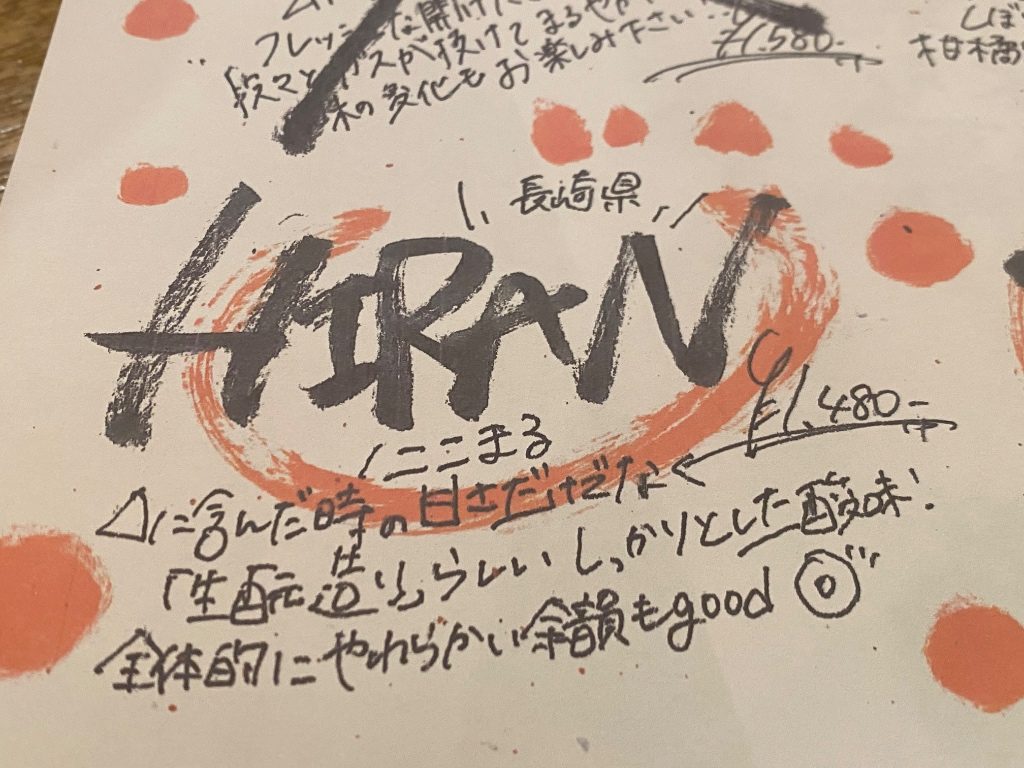 フレッシュな開けた
段々とガスが抜けてまるやか
味の変化もお楽しみ下さい…
¥1,580-
しぼ
柑橘
長崎県
HIRAN
にこまる
¥1,480-
口に含んだ時の甘さだけでなく
「生酛造り」らしいしっかりとした酸味!
全体的にやわらかい余韻もgood◎